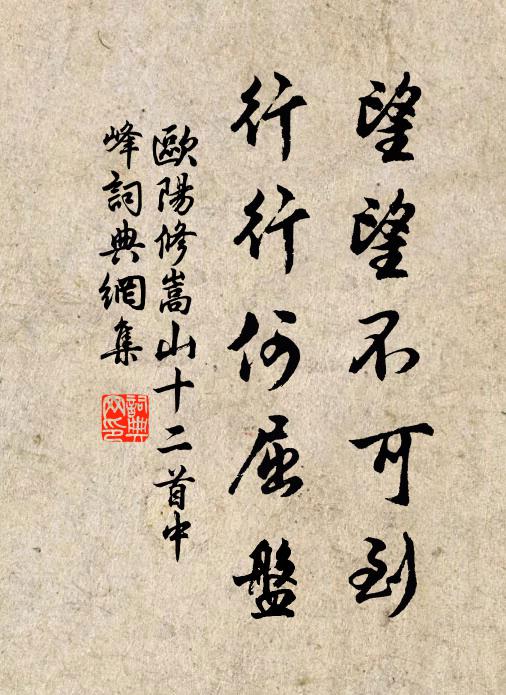 望望不可到
行行何屈盤
歐陽修嵩山十二首中
峰詞典網集
詞典
网印